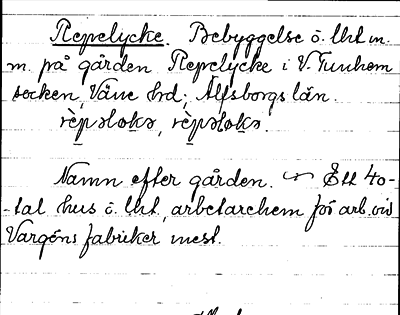 Repelycke. Bebyggelse ö. lht m.
m. på gården Repelycke i V. Tunhem
socken, Väne hrd; Älfsborgs län.
rèpəlo̱kə, rèpəlo̱kə.
Namn efter gården. Ett 40-
-tal hus ö. lht, arbetarehem för arb. vid
Vargöns fabriker mest.